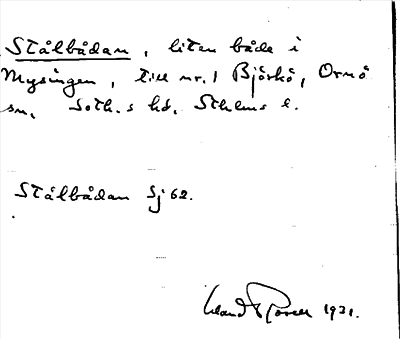 Stålbådan, liten både i
Mysingen, till nr. 1 Björkö, Ornö
sn, Soth.s hd, Sthlms l.
Stålbådan Sj 62.
1931.